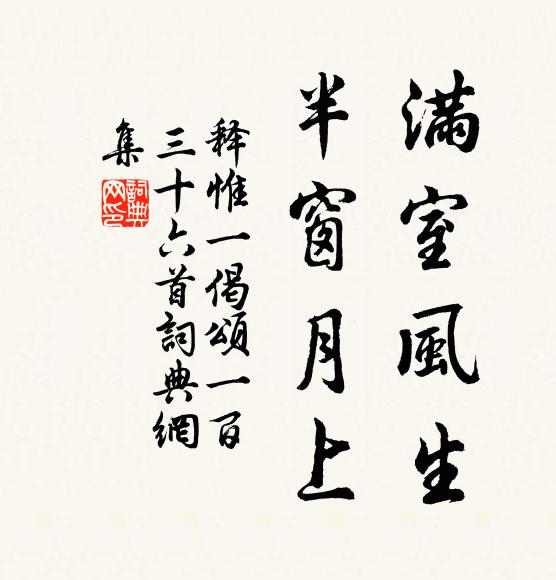 满室風生
半窗月上
释惟一偈頌一百
三十六首詞典網
集
詞典
网印